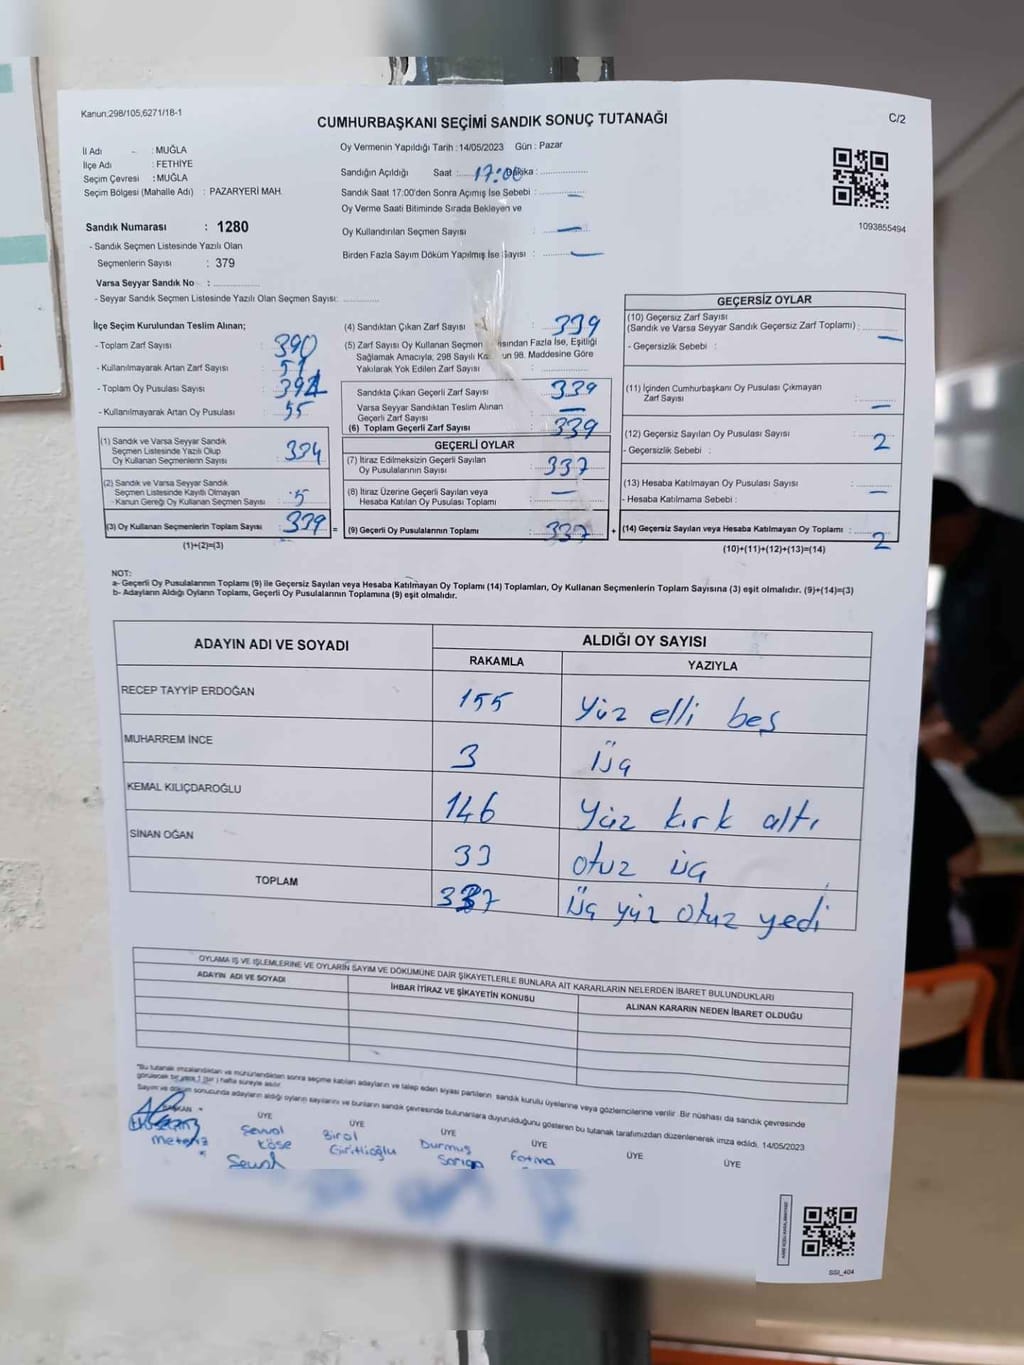 Kanun:298/105,6271/18-1
C/2
CUMHURBAŞKANI SEÇİMİ SANDIK SONUÇ TUTANAĞI
İl Adı : MUĞLA
İlçe Adı : FETHİYE
Seçim Çevresi : MUĞLA
Seçim Bölgesi (Mahalle Adı) : PAZARYERİ MAH.
Sandık Numarası : 1280
- Sandık Seçmen Listesinde Yazılı Olan
Seçmenlerin Sayısı : 379
Varsa Seyyar Sandık No :
- Seyyar Sandık Seçmen Listesinde Yazılı Olan Seçmen Sayısı:
Oy Vermenin Yapıldığı Tarih : 14/05/2023 Gün : Pazar
Sandığın Açıldığı Saat : 17:00 Dakika :
Sandık Saat 17:00'den Sonra Açımış İse Sebebi : –
Oy Verme Saati Bitiminde Sırada Bekleyen ve
Oy Kullandırılan Seçmen Sayısı : –
Birden Fazla Sayım Döküm Yapılmış İse Sayısı : –
1093855494
İlçe Seçim Kurulundan Teslim Alınan;
- Toplam Zarf Sayısı : 390
- Kullanılmayarak Artan Zarf Sayısı : 51
- Toplam Oy Pusulası Sayısı
- Kullanılmayarak Artan Oy Pusulası : 55
(1) Sandık ve Varsa Seyyar Sandık
Seçmen Listesinde Yazılı Olup
Oy Kullanan Seçmenlerin Sayısı : 334
(2) Sandık ve Varsa Seyyar Sandık
Seçmen Listesinde Kayıtlı Olmayan
Kanun Gereği Oy Kullanan Seçmen Sayısı : 5
(3) Oy Kullanan Seçmenlerin Toplam Sayısı : 339 =
(1)+(2)=(3)
(4) Sandıktan Çıkan Zarf Sayısı : 339
(5) Zarf Sayısı Oy Kullanan Seçmen Fazla İse, Eşitliği
Sağlamak Amacıyla, 298 Sayılı 98. Maddesine Göre
Yakılarak Yok Edilen Zarf Sayısı :
Sandıkta Çıkan Geçerli Zarf Sayısı : 339
Varsa Seyyar Sandıktan Teslim Alınan
Geçerli Zarf Sayısı : –
(6) Toplam Geçerli Zarf Sayısı : 339
GEÇERLİ OYLAR
(7) İtiraz Edilmeksizin Geçerli Sayılan
Oy Pusulalarının Sayısı : 337
(8) İtiraz Üzerine Geçerli Sayılan veya
Hesaba Katılan Oy Pusulası Toplamı : –
(9) Geçerli Oy Pusulalarının Toplamı : 337 +
GEÇERSİZ OYLAR
(10) Geçersiz Zarf Sayısı
(Sandık ve Varsa Seyyar Sandık Geçersiz Zarf Toplamı) : –
- Geçersizlik Sebebi :
(11) İçinden Cumhurbaşkanı Oy Pusulası Çıkmayan
Zarf Sayısı : –
(12) Geçersiz Sayılan Oy Pusulası Sayısı : 2
- Geçersizlik Sebebi :
(13) Hesaba Katılmayan Oy Pusulası Sayısı : –
- Hesaba Katılmama Sebebi :
(14) Geçersiz Sayılan veya Hesaba Katılmayan Oy Toplamı : 2
(10)+(11)+(12)+(13)=(14)
NOT:
a- Geçerli Oy Pusulalarının Toplamı (9) ile Geçersiz Sayılan veya Hesaba Katılmayan Oy Toplamı (14) Toplamları, Oy Kullanan Seçmenlerin Toplam Sayısına (3) eşit olmalıdır. (9)+(14)=(3)
b- Adayların Aldığı Oyların Toplamı, Geçerli Oy Pusulalarının Toplamına (9) eşit olmalıdır.
ADAYIN ADI VE SOYADI
ALDIĞI OY SAYISI
RAKAMLA YAZIYLA
RECEP TAYYİP ERDOĞAN 155 Yüz elli beş
MUHARREM İNCE 3 Üç
KEMAL KILIÇDAROĞLU 146 Yüz kırk altı
SİNAN OĞAN 33 otuz üç
TOPLAM 337 Üç yüz otuz yedi
OYLAMA İŞ VE İŞLEMLERİNE VE OYLARIN SAYIM VE DÖKÜMÜNE DAİR ŞİKAYETLERLE BUNLARA AİT KARARLARIN NELERDEN İBARET BULUNDUKLARI
ADAYIN ADI VE SOYADI
İHBAR İTİRAZ VE ŞİKAYETİN KONUSU
ALINAN KARARIN NEDEN İBARET OLDUĞU
"Bu tutanak imzalandıktan ve mühürlendikten sonra seçime katılan adayların ve talep eden siyasi partilerin sandık kurulu üyelerine veya gözlemcilerine verilir. Bir nüshası da sandık çevresinde
görülecek bir yere 1 (bir) hafta süreyle asılır.
Sayım ve döküm sonucunda adayların aldığı oyların sayılarını ve bunların sandık çevresinde bulunanlara duyurulduğunu gösteren bu tutanak tarafımızdan düzenlenerek imza edildi. 14/05/2023
BAŞKAN ÜYE ÜYE ÜYE ÜYE ÜYE ÜYE
Şevval
Köse
Birol
Giritlioğlu
Durmuş
Fatma
SSI_404